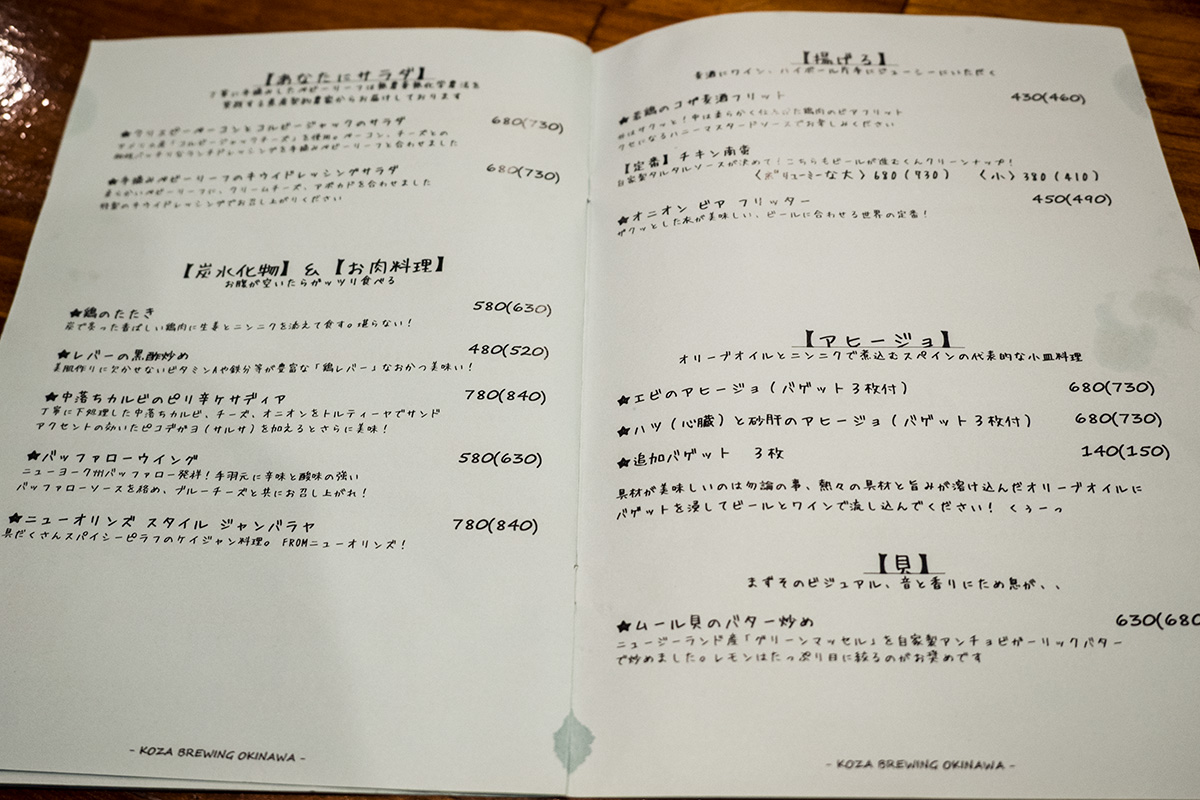 【あなたにサラダ】
丁寧に手摘みしたベビーリーフは無農薬無化学農法を
実践する県産契約農家からお届けしております
★クリスピーベーコンとコルビージャックのサラダ 680(730)
アメリカ産「コルビージャックチーズ」を使用。ベーコン、チーズとの
相性バッチリなランチドレッシングを手摘みベビーリーフと合わせました
★手摘みベビーリーフのキウイドレッシングサラダ 680(730)
柔らかいベビーリーフに、クリームチーズ、アボカドを合わせました
特製のキウイドレッシングでお召し上がりください
【炭水化物】&【お肉料理】
お腹が空いたらガッツリ食べる
★鶏のたたき 580(630)
炭で炙った香ばしい鶏肉に生姜とニンニクを添えて食す。堪らない!
★レバーの黒酢炒め 480(520)
美肌作りに欠かせないビタミンAや鉄分等が豊富な「鶏レバー」なおかつ美味い!
★中落ちカルビのピリ辛ケサディア 780(840)
丁寧に下処理した中落ちカルビ、チーズ、オニオンをトルティーヤでサンド
アクセントの効いたピコデガヨ(サルサ)を加えるとさらに美味!
★バッファローウイング 580(630)
ニューヨーク州バッファロー発祥!手羽元に辛味と酸味の強い
バッファローソースを絡め、ブルーチーズと共にお召し上がれ!
★ニューオリンズ スタイル ジャンバラヤ 780(840)
具だくさんスパイシーピラフのケイジャン料理。 FROMニューオリンズ!
- KOZA BREWING OKINAWA -
【揚げる】
麦酒にワイン、ハイボール片手にジューシーにいただく
★若鶏のコザ麦酒フリット 430(460)
外はサクッと!中は柔らかく仕上げた鶏肉のビアフリット
クセになるハニーマスタードソースでお楽しみください
【定番】チキン南蛮
自家製タルタルソースが決めて!こちらもビールが進むくんクリーンナップ!
〈ボリューミーな大〉680(730) 〈小〉380(410)
★オニオン ビア フリッター 450(490)
ザクッとした衣が美味しい、ビールに合わせる世界の定番!
【アヒージョ】
オリーブオイルとニンニクで煮込むスペインの代表的な小皿料理
★エビのアヒージョ(バゲット3枚付) 680(730)
★ハツ(心臓)と砂肝のアヒージョ(バゲット3枚付) 680(730)
★追加バゲット 3枚 140(150)
具材が美味しいのは勿論の事、熱々の具材と旨みが溶け込んだオリーブオイルに
バゲットを浸してビールとワインで流し込んでください! くぅーっ
【貝】
まずそのビジュアル、音と香りにため息が、、
★ムール貝のバター炒め 630(680
ニュージーランド産「グリーンマッセル」を自家製アンチョビガーリックバター
で炒めました。レモンはたっぷり目に絞るのがお奨めです
- KOZA BREWING OKINAWA -